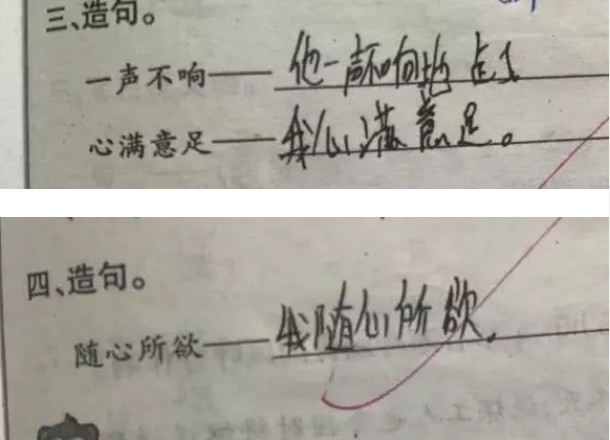 三、造句。
一声不响——他一声不响地走了
心满意足——我心满意足。
四、造句。
随心所欲——我随心所欲。